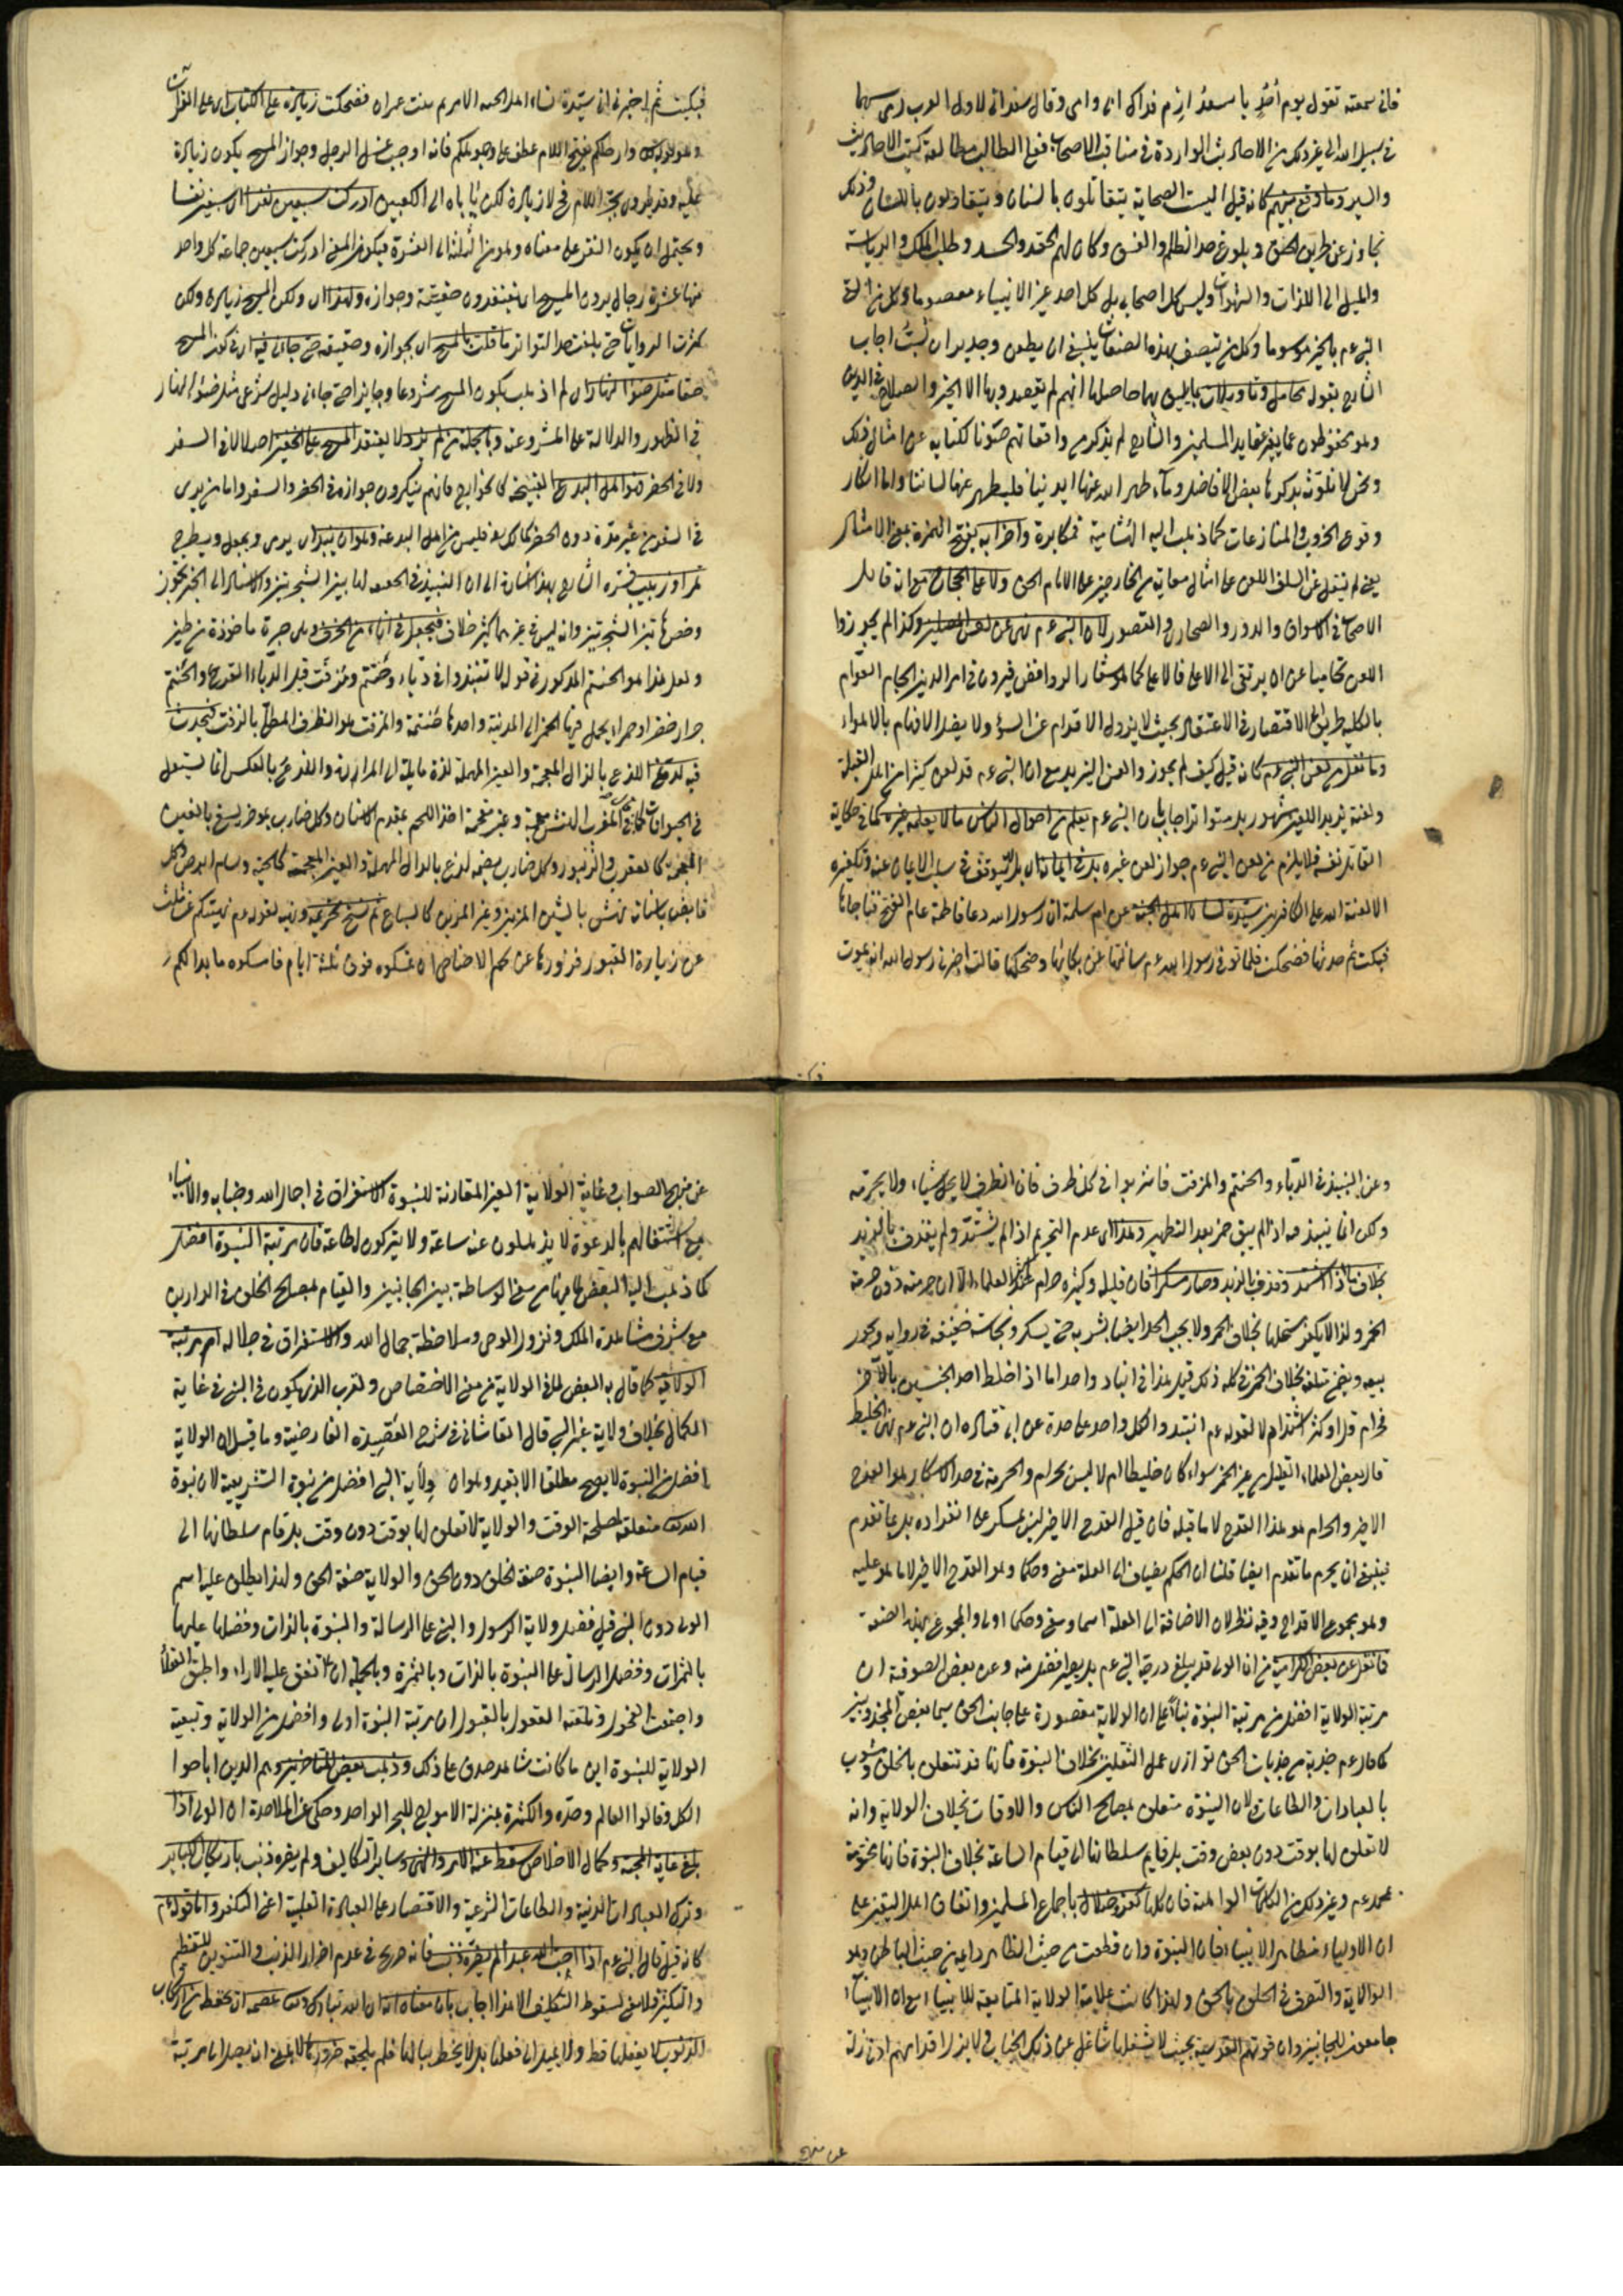 فانى سمعته تقول يوم أُحُدٍ يا سعدُ ارْمِ فداك ابى وامى وقال سعد انى لاول العرب رمى سهما
فى سبيل الله الى غير ذلك من الاحاديث الواردة فى مناقب الاصحاب فعلى الطالب مطالعة كتب الاحاديث
والسير وما وقع بينهم كانه قيل اليست الصحابة يتقاتلون بالسنان ويتقاذفون باللسان وذلك
تجاوز عن طريق الحق وبلوغ حد الظلم والفسق وكان لهم الحقد والحسد وطلب الملك والرياسة
والميل الى اللذات والشهوات وليس كل اصحابى بل كل احد غير الانبياء معصوما ولا كل من لقى
النبى عم بالخير موسوما وكل من تتصف بهذه الصفات ينبغى ان يطعن وجدير ان يُسَبّ اجاب
الشارح بقوله محامل وتاويلات مما يليق بها حاصلها انهم لم يقصدوا بها الا الخير والصلاح فى الدين
وهو محفوظون عما يغير عقايد المسلمين والشارح لم يذكر من واقعاتهم صونا لكتابه عن امثال ذلك
ونحن لا نلوث بذكرها بعض الافاضل دماء طهر الله عنها ايدينا فليطهر عنها لساننا واما انكار
وقوع الحروب والمنازعات كما ذهب اليه الهشامية فمكابرة واحزابه بفتح الهمزة بمعنى الامثال
يعنى لم ينقل عن السلف اللعن على امثال معاوية من الخارجين على الامام الحق ولا على الحجاج مع انه قاتل
الاصحاب فى الاسواق والدور والصحارى والقصور لان النبى عم نهى عن لعن المصلين وكذا لم يجوزوا
اللعن تحاميا عن ان يرتقى الى الاعلى فالاعلى كما هو شعار الروافض فيرون فى امر الدين الجام العوام
بالكلية طريق الاقتصار فى الاعتقاد بحيث لا يزول الاقدام عن السوء ولا يضل الافهام بالاهواء
وما نقل من لعن النبى عم كانه قيل كيف لم يجوز والعن اليزيد مع ان النبى عم قد لعن كثيرا من اهل القبلة
ولعنة يزيد اللعين مشهور بل متواتر اجاب بان النبى عم يعلم من احوال الناس ما لا يعلمه غيره كما فى حكاية
القاتل نفسه فلا يلزم من لعن النبى عم جواز لعن غيره بل فى ايمانه ان بل يتوقف فى سلب الايمان عنه وتكفيره
الا لعنة الله على الكافرين سيدة نساء اهل الجنة عن ام سلمة ان رسول الله دعا فاطمة عام الفتح فناجاها
فبكت ثم حدثها فضحكت فلما توفى رسول الله عم سالتها عن بكائها وضحكها قالت اخبرنى رسول الله انه يموت
فبكيت ثم اخبرنى انى سيدة نساء اهل الجنة الا مريم بنت عمران فضحكت زيادة على الكتاب اى على القرآن
وهو قوله تعالى وارجلكم بفتح اللام عطف على وجوهكم فانه اوجب غسل الرجل وجواز المسح يكون زيادة
عليه وقد يقرؤن بجر اللام فح لا زيادة لكن يأباه الى الكعبين ادركت سبعين نفرا اى سبعين نفسا
ويحتمل ان يكون النفر على معناه وهو من الثلثة الى العشرة فيكون المعنى ادركت سبعين جماعة كل واحد
منها عشرة رجال يرون المسح اى يعتقدون حقيته وجوازه ولهذا اى ولكن المسح زيادة ولكن
كثرت الروايات حتى بلغت حد التواتر ما قلت بالمسح اى بجوازه وحقيقه حتى جاءنى فيه اى فى كون المسح
حقا مثل ضوء النهار اى لم اذهب بكون المسح مشروعا وجايزا حتى جاءنى دليل شرعى مثل ضوء النهار
فى الظهور والدلالة على المشروعية وبالجملة من لم ير ولا يعتقد المسح على الخفين اصلا لا فى السفر
ولا فى الحضر فهو اهل البدع القبيحة كالخوارج فانهم ينكرون جوازه فى الحضر والسفر واما من يرى
فى السفر من غير مدة دون الحضر كمالك فليس من اهل البدعة وهو ان ينبذ اى يرمى ويجعل ويطرح
تمر او زبيب فسره الشارح بهذا اشارة الى ان النبيذ فى الحديث لما بين الشجرتين والاشارة الى الخبر تجوز
وخص ماء تين الشجرتين وانه ليس فى غيرهما كثير خلاف فيجعل فى اناء من الخزف وهى جرة ماخوذة من طين
ولعل هذا هو الحنتم المذكور فى قوله لا تنبذوا فى دباء وحنتم ومزفت قيل الدباء القرع والحنتم
جرار خضر او حمر يحمل فيها الخمر الى المدينة واحدها حنتمة والمزفت هو الظرف المطلى بالزفت فيحدث
فيه لذع اللذع بالذال المعجمة والعين المهملة لذة مايلة الى المرارة واللدغ بالعكس انما يستعمل
فى الحيوان كما فى المغرب النهش بعجمة وغير عجمة اخذ اللحم بمقدم الاسنان وكل ضارب بمؤخره يسع بالعين
المهملة كالعقرب والزنبور وكل ضارب بفمه يلدغ بالدال المهملة والغين المعجمة كالحية وسام ابرص وكل
قابض باسنانه نهش بالشين المزين وغير المزين كالسباع ثم نسخ تحريمه ونهيه لقوله عم نهيتكم عن ثلث
عن زيارة القبور فزوروها وعن لحم الاضاحى ان تمسكوه فوق ثلثة ايام فامسكوه ما بدا لكم
وعن النبيذ فى الدباء والحنتم والمزفت فاشربوا فى كل ظرف فان الظرف لا يحل شيئا ولا يحرمه
ولكن انما ينبذ فيه اذا لم يبق خمر بعد التطهير وهذا اى عدم التحريم اذا لم يشتد ولم يقذف بالزبد
بخلاف ما اذا اشتد وقذف بالزبد وصار مسكرا فان قليله وكثيره حرام عند اكثر العلماء الا ان حرمته دون حرمة
الخمر ولذا لا يكفر مستحلها بخلاف الخمر ولا يجب الحد ايضا بشربه حتى يسكر ونجاسته خفيفة فى رواية ويجوز
بيعه ويضمن متلفه بخلاف الخمر فى كله ذلك قيل هذا فى انباذ واحد اما اذا اختلط احد الجنسين بالآخر
فحرام قل او كثر اشتد ام لا لقوله عم انتبذوا كل واحد على حدة عن ابى قتادة ان النبى عم نهى الخليط
قال بعض العلماء القليل من غير الخمر سواء كان خليطا ام لا ليس بحرام والحرمة فى حد الاسكار هو القدح
الاخير والحرام هو هذا القدح لا ما قبله فان قيل القدح الاخير ليس بمسكر على انفراده بل بما تقدم
فينبغى ان يحرم ما تقدم ايضا قلنا ان الحكم يضاف الى العلة معنى وحكما وهو القدح الاخير لا ما هو عليه
وهو مجموع الاقداح وفيه نظر لان الاضافة الى العلة اسما ومعنى وحكما اولى والمجموع بهذه الصفة
فما نقل عن بعض الكرامية من ان الولى قد يبلغ درجة النبى عم بل يصير افضل منه وعن بعض الصوفية ان
مرتبة الولاية افضل من مرتبة النبوة بناءً على ان الولاية مقصورة على جانب الحق سيما بعض المجذوبين
كما قال عم جذبة من جذبات الحق توازى عمل الثقلين بخلاف النبوة فانها قد تتعلق بالخلق وتشوب
بالعبادات والطاعات ولان النبوة متعلق بمصالح الناس والاوقات بخلاف الولاية وانه
لا تعلق لها بوقت دون بعض وقت بل قايم سلطانها الى قيام الساعة بخلاف النبوة فانها مختومة
بمحمد عم وغير ذلك من الكلمات الواهية فان كلها كفر وضلال باجماع المسلمين واتفاق اهل اليقين على
ان الاولياء مظاهر الانبياء فان النبوة وان قطعت من حيث الظاهر دايمة من حيث الباطن وهو
الولاية والتصرف فى الخلق بالحق ولهذا كانت علامة الولاية المتابعة للانبياء مع ان الانبياء
جامعون للجانبين وان قوتهم القدسية بحيث لا يشغلها شاغل عن ذلك الجناب ولا يزل اقدامهم ادنى زلة
عن منهج الصواب وغاية الولاية الغير المقارنة للنبوة الاستغراق فى اجلال الله وجنابه والانبياء
مع اشتغالهم بالدعوة لا يذهلون عنه ساعة ولا يتركون لطاعة فان مرتبة النبوة افضل
كما ذهب اليه البعض لما فيها من معنى الوساطة بين الجانبين والقيام بمصالح الخلق فى الدارين
مع شرف مشاهدة الملك ونزول الوحى وملاحظة جمال الله والاستغراق فى جلاله ام مرتبة
الولاية كما قال به البعض لما فى الولاية من معنى الاختصاص والقرب الذى يكون فى النبى فى غاية
الكمال بخلاف ولاية غير النبى قال القاشانى فى شرح القصيدة الفارضية وما قيل ان الولاية
افضل من النبوة لا يصح مطلقا الا بقيد وهو ان ولاية النبى افضل من نبوة التشريعية لان نبوة
التشريع متعلقة لمصلحة الوقت والولاية لا تعلق لها بوقت دون وقت بل قام سلطانها الى
قيام الساعة وايضا النبوة صفة الخلق دون الحق والولاية صفة الحق ولهذا يطلق عليه اسم
الولى دون النبى قيل فضل ولاية الرسول والنبى على الرسالة والنبوة بالذات وفضلها عليها
بالثمرات وفضل الرسالة على النبوة بالذات وبالثمرة وبالجملة ان ما تفق عليه الآراء واطبق العقلاء
واجتمعت الفحول وتلقته العقول بالقبول ان مرتبة النبوة اولى وافضل من الولاية وتبعية
الولاية للنبوة اين ما كانت شاهد صدق على ذلك وذهب بعض المتاخرين وهم الذين اباحوا
الكل وقالوا العالم وحده والكثرة بمنزلة الامواج للبحر الواحد وحكى عن الملاحدة ان الولى اذا
بلغ غاية المحبة وكمال الاخلاص سقط عنه الامر والنهى وساير التكاليف ولم يضره ذنب بارتكاب الكباير
وترك العبادات البدنية والطاعات الشرعية والاقتصار على العبادة القلبية اعنى التفكر واما قوله عم
كانه قيل قال النبى عم اذا احب الله عبدا لم يضره ذنب فانه صريح فى عدم اضرار الذنب والتنوين للتعظيم
والتكثير فلا معنى لسقوط التكليف الا هذا اجاب بان معناه اه ان الله تبارك وتعالى عصمه اى يحفظ من ارتكاب
الذنوب لا يفعلها قط ولا يميل الى فعلها بل لا يخطر ببالها فلم يلحقه ضررها لا بمعنى انه يصل الى مرتبة
عن منهج